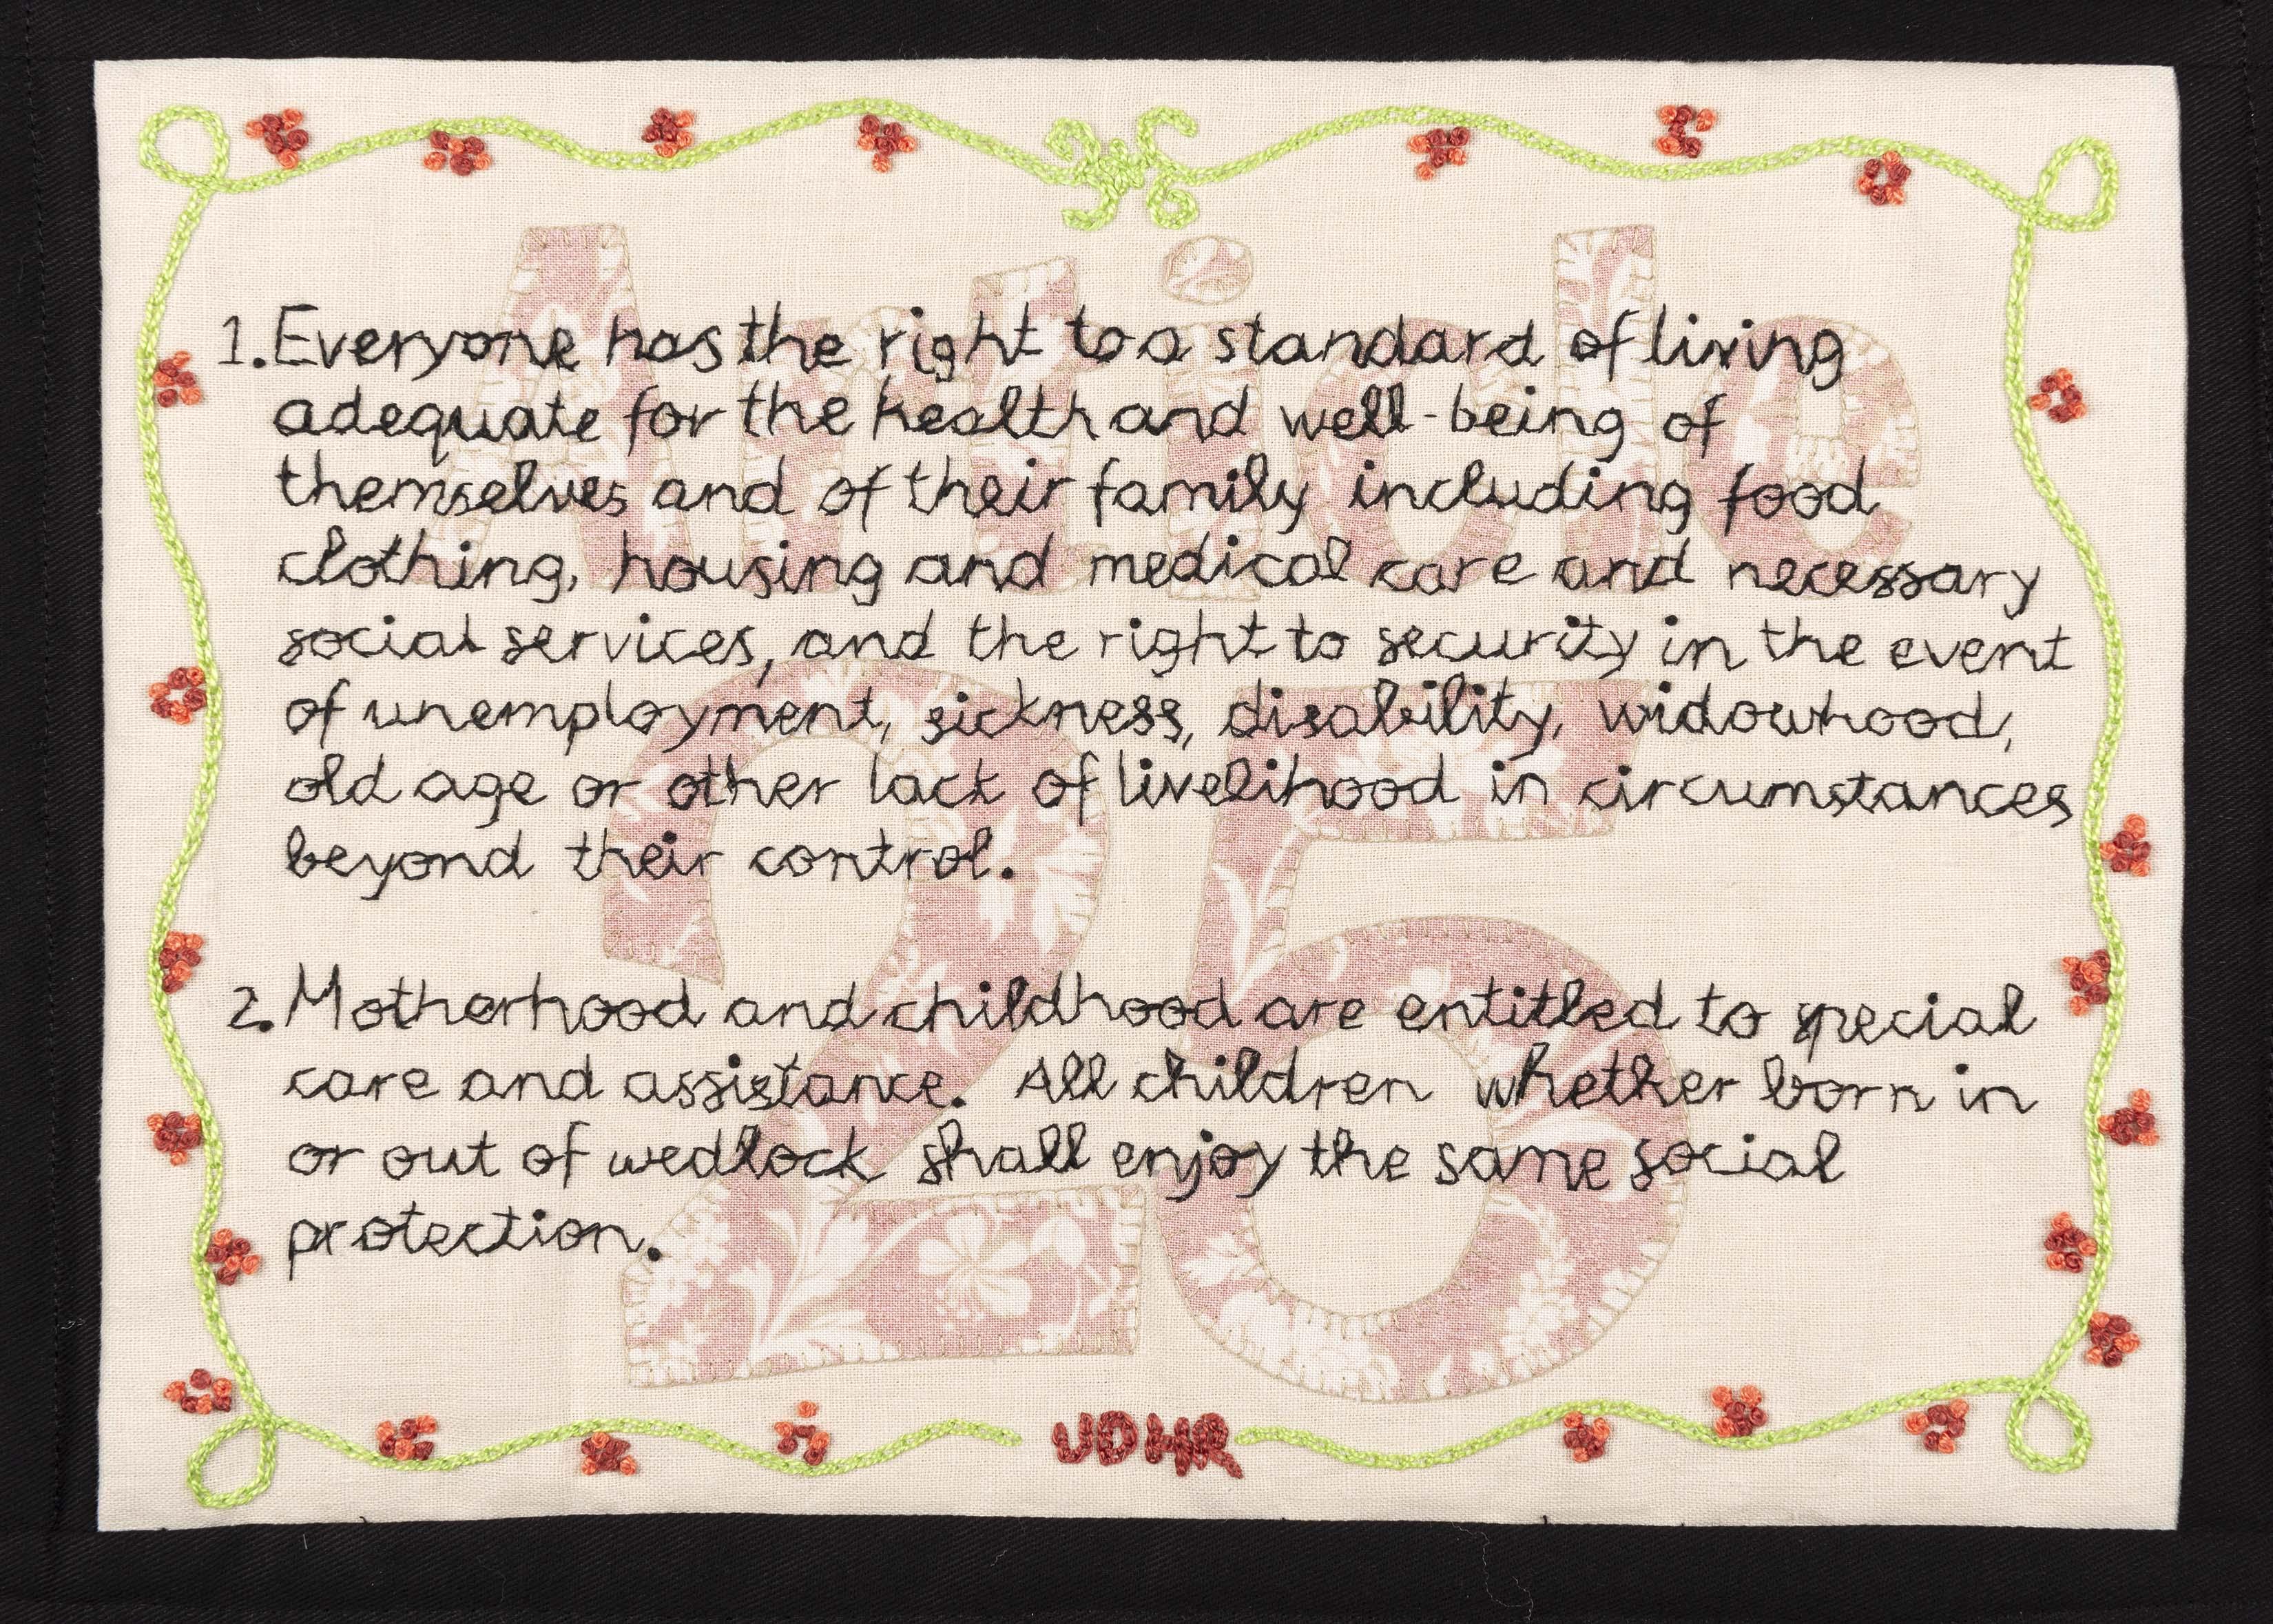 Article
25
1. Everyone has the right to a standard of living
adequate for the health and well-being of
themselves and of their family including food
clothing, housing and medical care and necessary
social services, and the right to security in the event
of unemployment, sickness, disability, widowhood,
old age or other lack of livelihood in circumstances
beyond their control.
2. Motherhood and childhood are entitled to special
care and assistance. All children whether born in
or out of wedlock shall enjoy the same social
protection.
UDHR